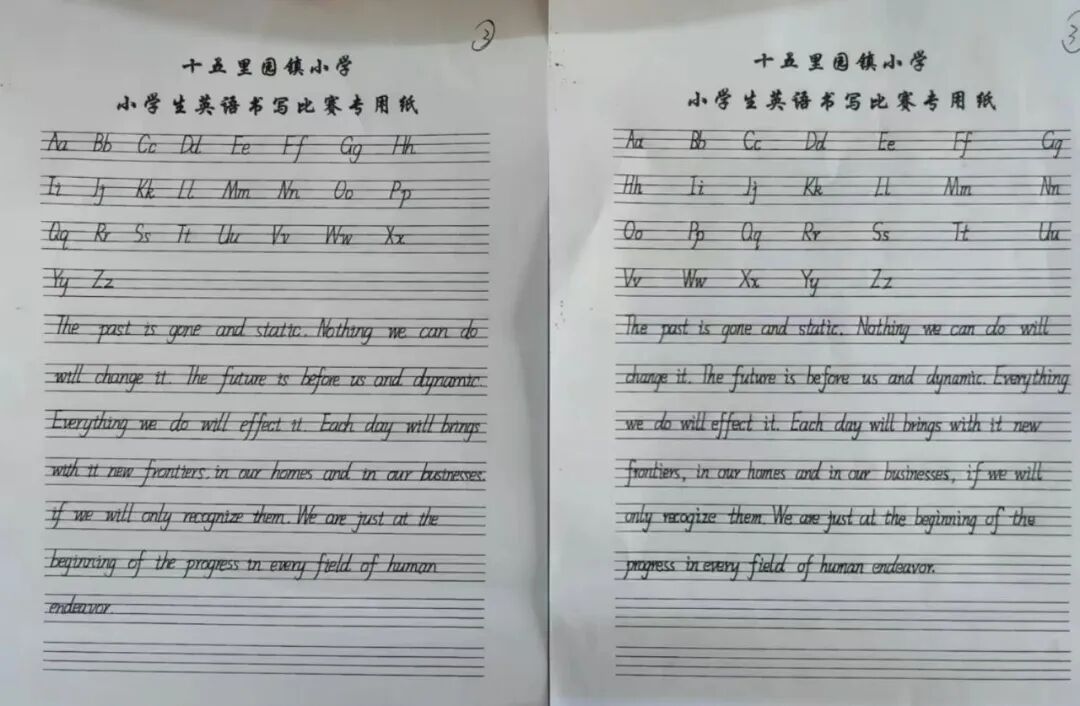 3
十五里园镇小学
小学生英语书写比赛专用纸
Aa Bb Cc Dd Ee Ff Gg Hh
Ii Jj Kk Ll Mm Nn Oo Pp
Qq Rr Ss Tt Uu Vv Ww Xx
Yy Zz
The past is gone and static. Nothing we can do
will change it. The future is before us and dynamic.
Everything we do will effect it. Each day will brings
with it new frontiers. in our homes and in our businesses.
if we will only recognize them. We are just at the
beginning of the progress in every field of human
endeavor.
3
十五里园镇小学
小学生英语书写比赛专用纸
Aa Bb Cc Dd Ee Ff Gg
Hh Ii Jj Kk Ll Mm Nn
Oo Pp Qq Rr Ss Tt Uu
Vv Ww Xx Yy Zz
The past is gone and static. Nothing we can do will
change it. The future is before us and dynamic. Everything
we do will effect it. Each day will brings with it new
frontiers, in our homes and in our businesses, if we will
only recogize them. We are just at the beginning of the
progress in every field of human endeavor.